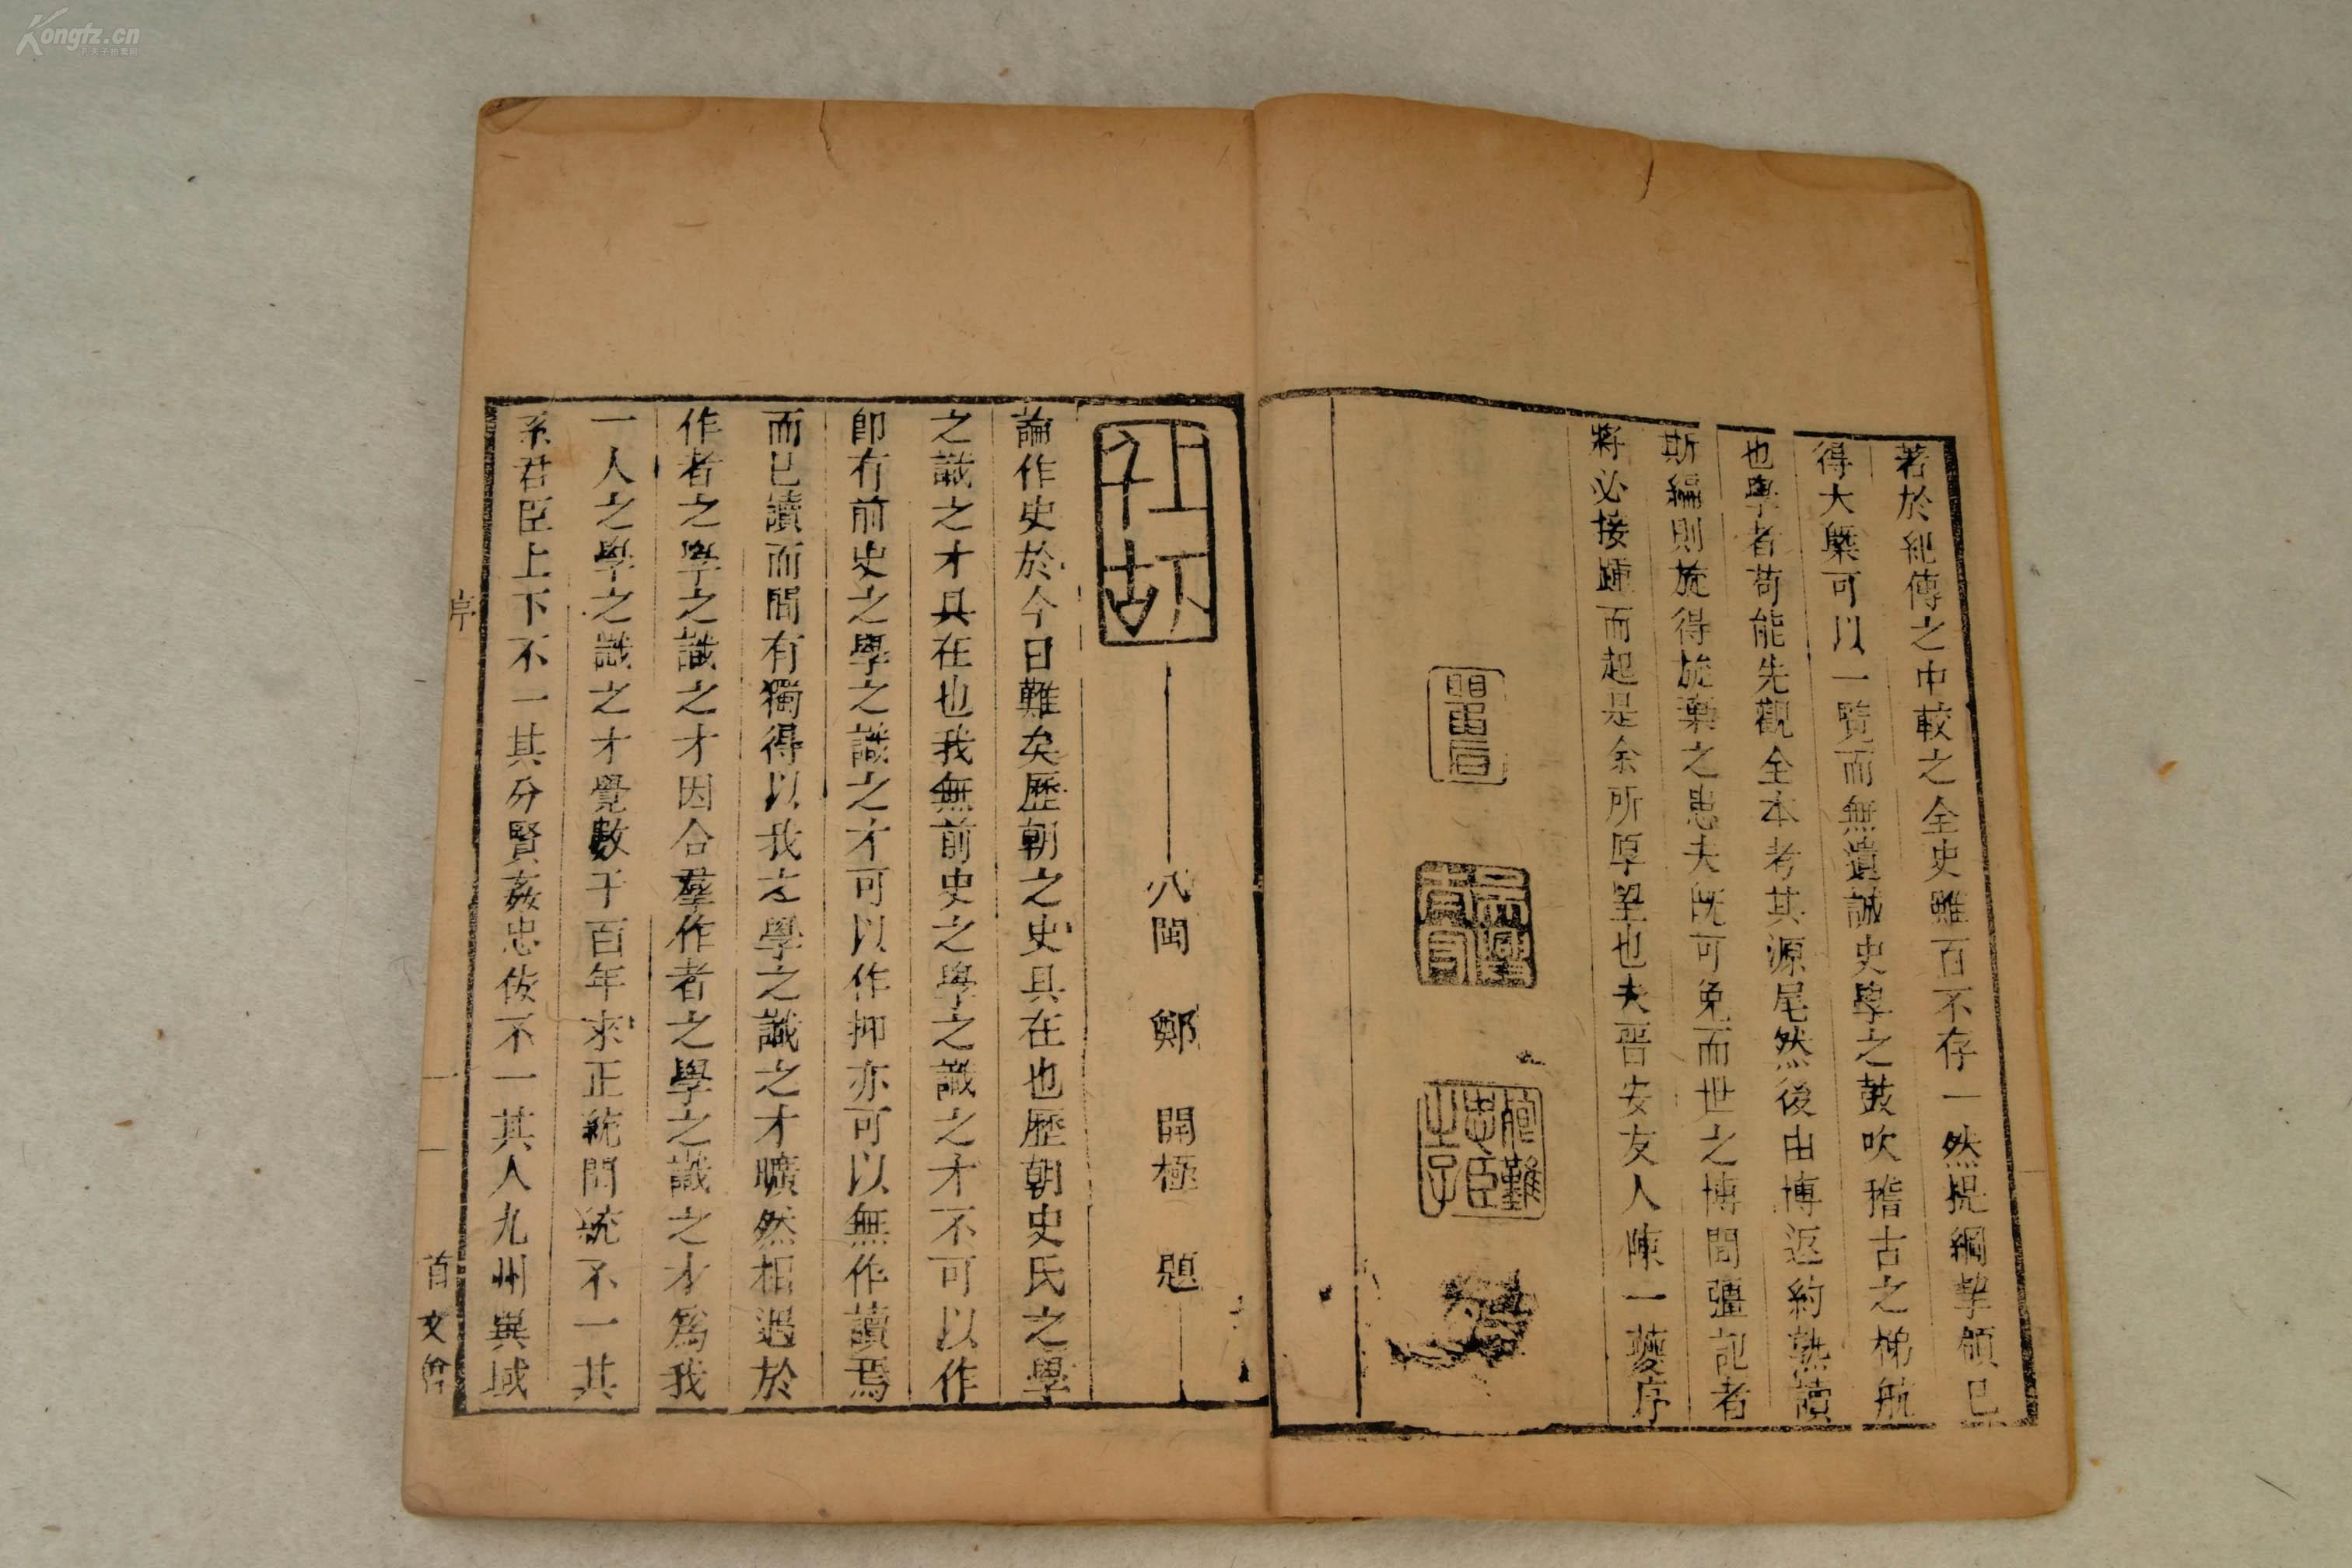 著於紀傳之中較之全史雖百不存一然提綱挈領已
得大槩可以一覽而無遺誠史學之鼓吹稽古之梯航
也學者苟能先觀全本考其源尾然後由博返約熟讀
斯編則旋得旋棄之患夫旣可免而世之博聞彊記者
將必接踵而起是余所厚望也夫晋安友人陳一夔序
社胡
八閩 鄭 開極 題
論作史於今日難矣歷朝之史具在也歷朝史氏之學
之識之才具在也我無前史之學之識之才不可以作
卽有前史之學之識之才可以作抑亦可以無作讀焉
而已讀而間有獨得以我之學之識之才曠然相遇於
作者之學之識之才因合羣作者之學之識之才爲我
一人之學之識之才覺數千百年來正統閏統不一其
系君臣上下不一其分賢姦忠佞不一其人九州異域
序
一
首文會
Kongfz.cn